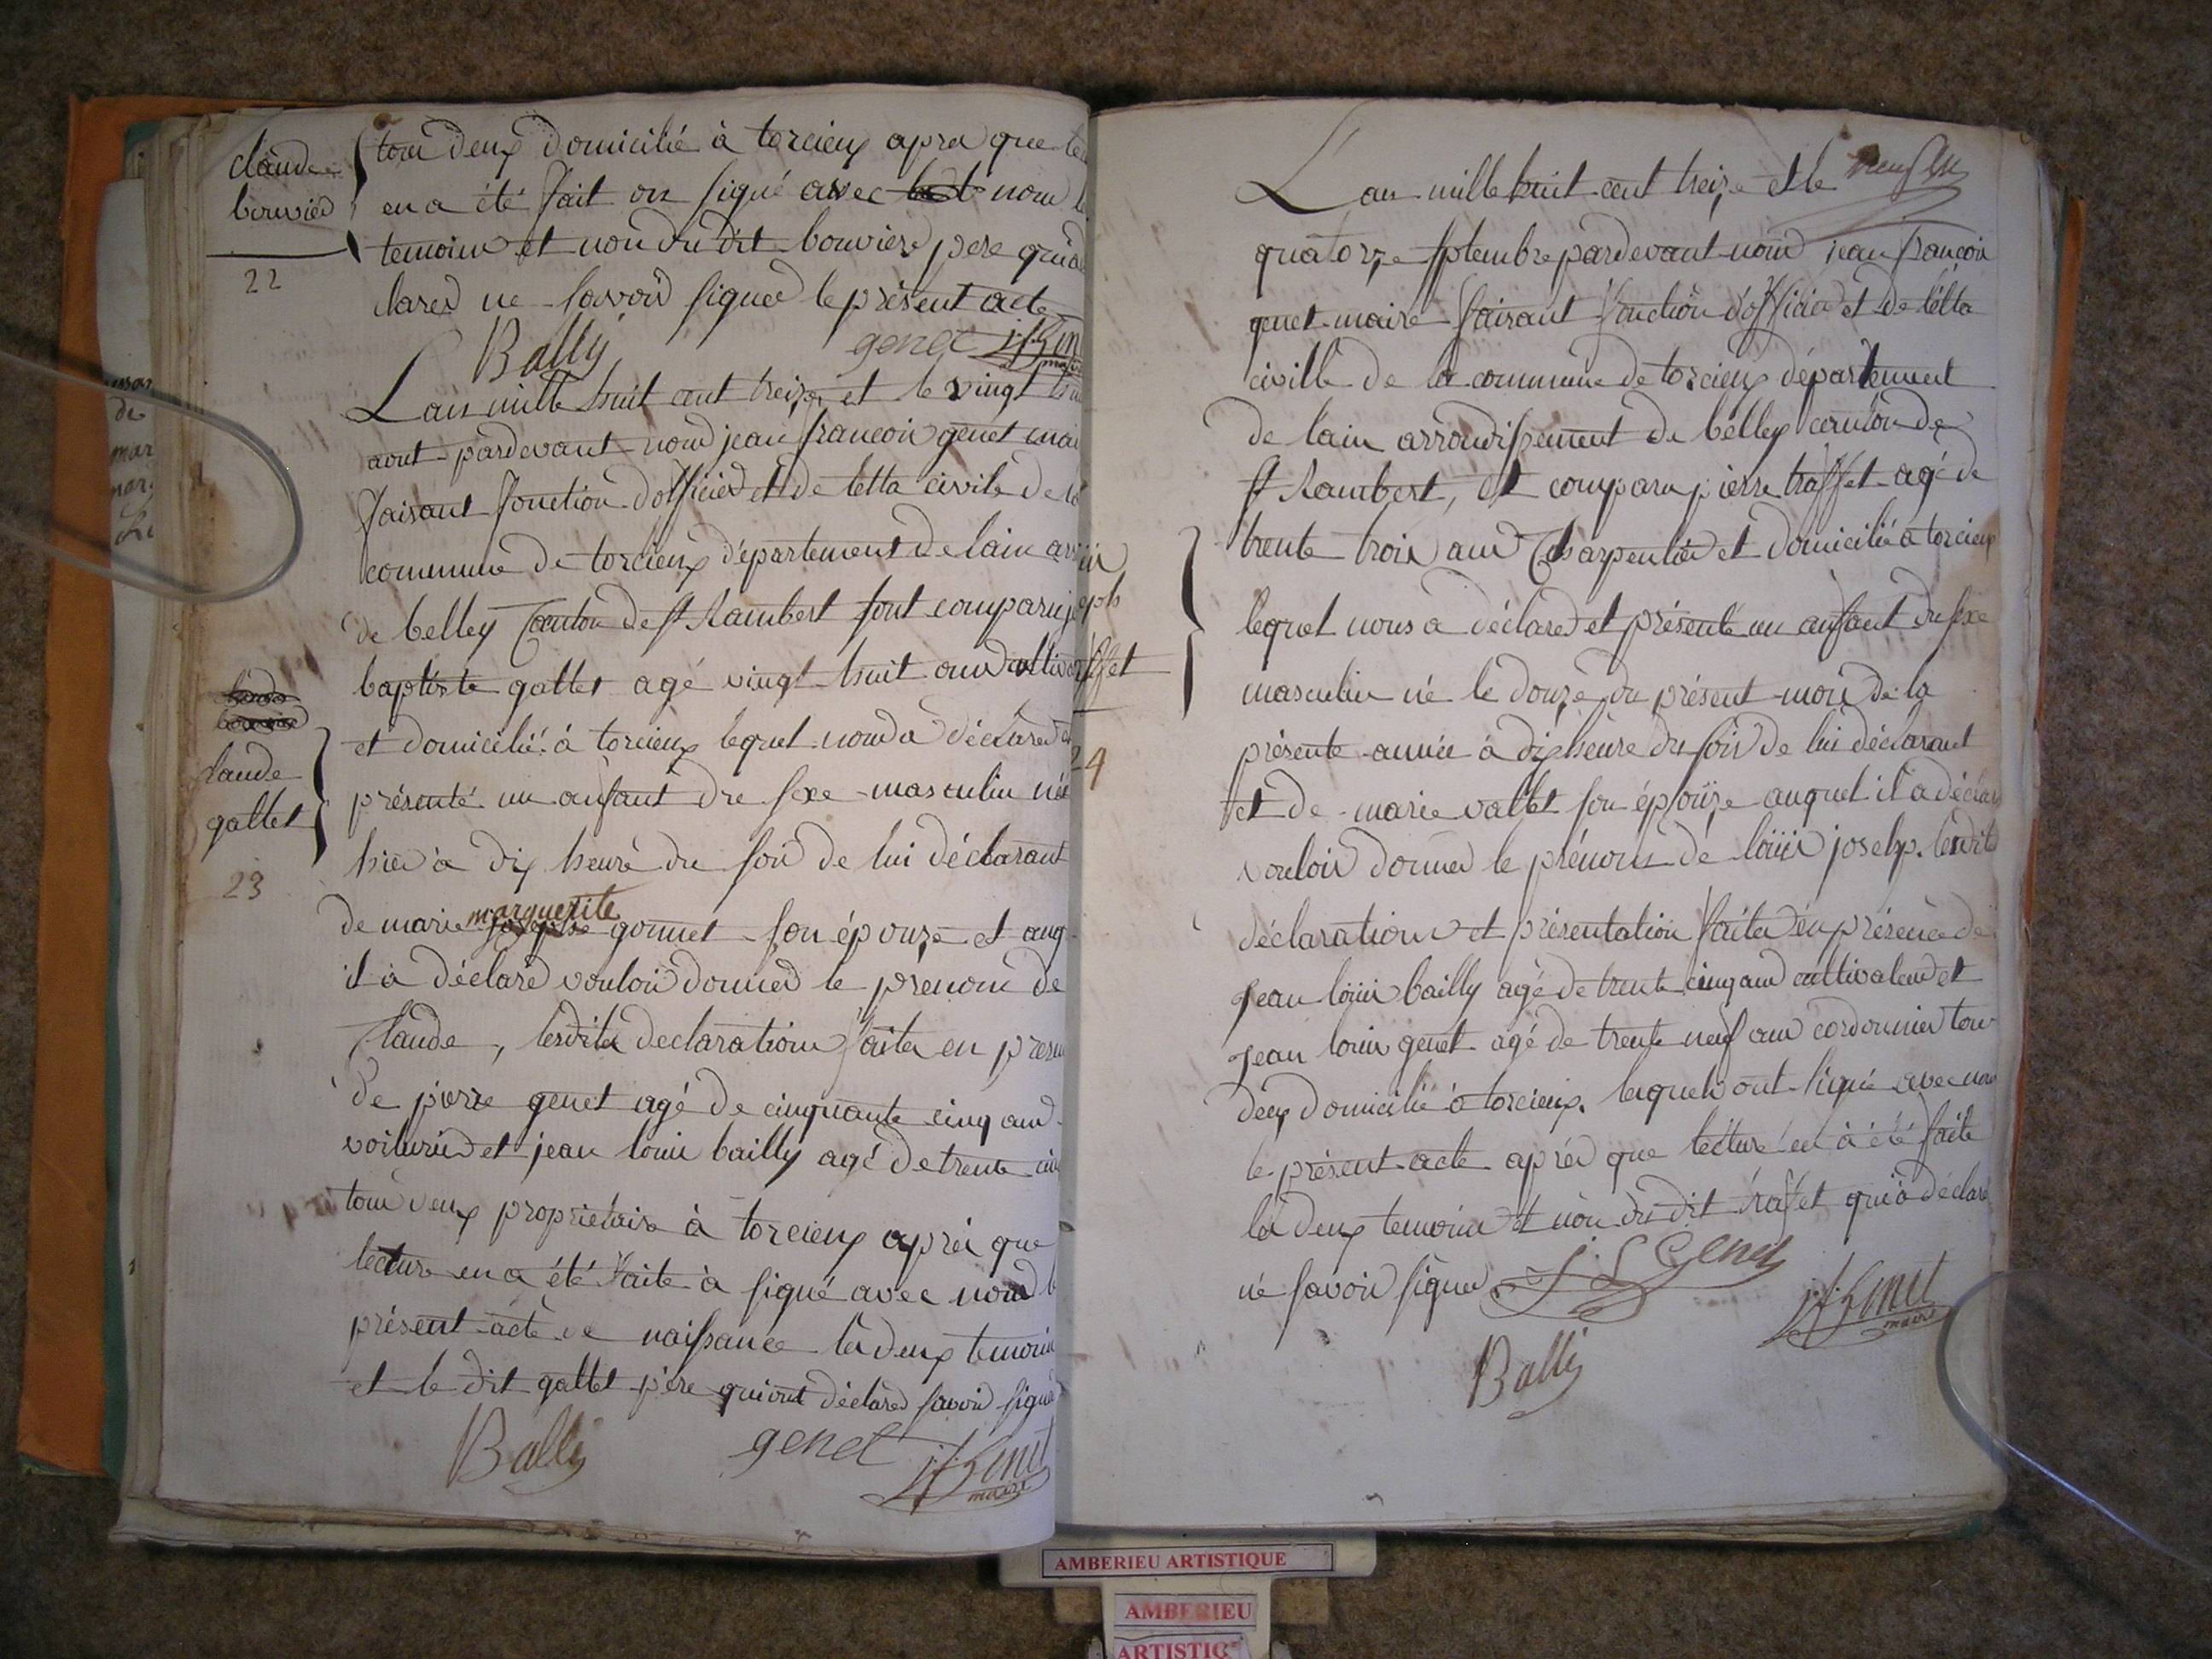 claude
bouvier
22
tous deux domicilié à torcieux apres que
en a été fait on signé avec nous
temoins et non du dit bouvier pere qui a
clarer ne savoir signer le présent acte
Bally genet j f Genet
maire
L'an mille huit cent treize et le vingt
aout pardevant nous jean francois genet
faisant fonction d'officier et de letta civile de la
commune de torcieux département de lain
de belley Canton de st Rambert sont comparu
baptiste gallet agé vingt huit ans
et domicilié à torcieux lequel nous a déclarer
présenté un anfant dre sexe masculin née
hier à dix heure du soir de lui déclarant
marguerite
de marie josephe gonnet son épouze et
il à déclaré vouloir donner le prenom de
Claude, lesdites declarations faites en
de pierre genet agé de cinquante cinq ans
voiturier et jean louis bailly agé de trente
tous deux proprietaire à torcieux après que
lecture en a été faite à signé avec nous
présent acte de naissance les deux temoins
et le dit gallet père qui ont déclarer savoir signé
claude
gallet
23
Bally genet j f Genet
maire
L'an mille huit cent treize et le
quatorze septembre pardevant nous jean francois
genet maire faisant fonction d'officier et de létta
civille de la commune de torcieux département
de lain arrondissement de belley canton de
st Rambert, est comparu pierre traffet agé de
trente trois ans Charpentier et domicilié a torcieux
lequel nous a déclarer et présenté un anfant du sexe
masculin né le douze du présent mois de la
présente année à dix heure du soir de lui déclarant
et de marie vallet son épouze auquel il a
vouloir donner le prénoms de loüis joselp. lesdites
déclarations et présentation faites en présence de
jean loüis bailly agé de trente cinq ans cultivateur et
jean louis genet agé de trente neuf ans cordonnier tous
deux domicilié à torcieux. lequels ont signé avec nous
le présent acte après que lecture en à été faite
les deux temoins et non du dit trafet qui à déclaré
né savoir signer J L Genet
j f Genet
maire
Bally
24
AMBERIEU ARTISTIQUE
AMBERIEU
ARTISTIQ